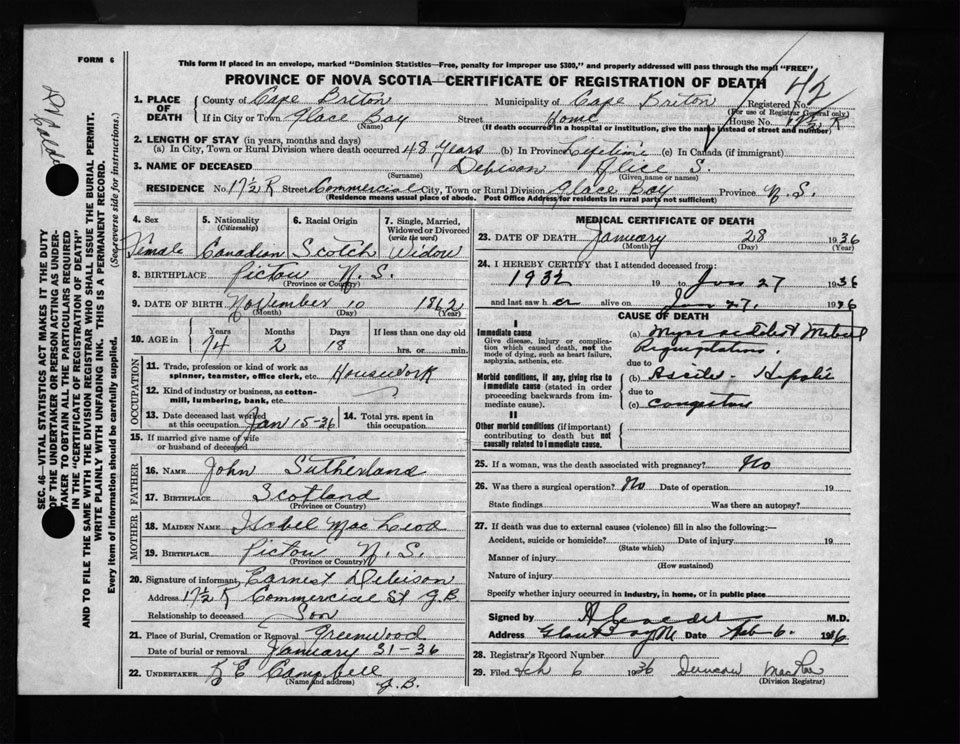 FORM 6
This form if placed in an envelope, marked "Dominion Statistics—Free, penalty for improper use $300," and properly addressed will pass through the mail "FREE"
PROVINCE OF NOVA SCOTIA—CERTIFICATE OF REGISTRATION OF DEATH
42
1. PLACE OF DEATH
County of Cape Briton Municipality of Cape Briton Registered No.
(For use of Registrar General only.)
If in City or Town Glace Bay Street Home House No. 17½ R
(Name) (If death occurred in a hospital or institution, give the name instead of street and number)
2. LENGTH OF STAY (in years, months and days)
(a) In City, Town or Rural Division where death occurred 48 Years (b) In Province Lifetime (c) In Canada (if immigrant)
3. NAME OF DECEASED Debison Alice S.
(Surname) (Given name or names)
RESIDENCE No. 17½ R Street Commercial City, Town or Rural Division Glace Bay Province N.S.
(Residence means usual place of abode. Post Office Address for residents in rural parts not sufficient)
SEC. 46—VITAL STATISTICS ACT MAKES IT THE DUTY
OF THE UNDERTAKER OR PERSON ACTING AS UNDER-
TAKER TO OBTAIN ALL THE PARTICULARS REQUIRED
IN THE "CERTIFICATE OF REGISTRATION OF DEATH"
AND TO FILE THE SAME WITH THE DIVISION REGISTRAR WHO SHALL ISSUE THE BURIAL PERMIT.
WRITE PLAINLY WITH UNFADING INK. THIS IS A PERMANENT RECORD.
Every item of information should be carefully supplied. (See reverse side for instructions.)
4. Sex 5. Nationality 6. Racial Origin 7. Single, Married, Widowed or Divorced
(Citizenship) (write the word)
Female Canadian Scotch Widow
8. BIRTHPLACE Pictou N.S.
(Province or Country)
9. DATE OF BIRTH November 10 1862
(Month) (Day) (Year)
10. AGE in Years Months Days If less than one day old
74 2 18 hrs. or min.
OCCUPATION
11. Trade, profession or kind of work as spinner, teamster, office clerk, etc. Housework
12. Kind of industry or business, as cotton-mill, lumbering, bank, etc.
13. Date deceased last worked at this occupation Jan 15-36
14. Total yrs. spent in this occupation
15. If married give name of wife or husband of deceased
FATHER
16. NAME John Sutherland
17. BIRTHPLACE Scotland
(Province or Country)
MOTHER
18. MAIDEN NAME Isabel Mac Leod
19. BIRTHPLACE Pictou N.S.
(Province or Country)
20. Signature of informant Earnest Debison
Address 17½ R Commercial St G.B.
Relationship to deceased Son
21. Place of Burial, Cremation or Removal Greenwood
Date of burial or removal January 31-36
22. UNDERTAKER Campbell
(Name and address) G.B.
MEDICAL CERTIFICATE OF DEATH
23. DATE OF DEATH January 28 1936
(Month) (Day) (Year)
24. I HEREBY CERTIFY that I attended deceased from:
1932 19 to Jan 27 1936
and last saw her alive on Jan 27. 1936
CAUSE OF DEATH
I
Immediate cause
Give disease, injury or complication which caused death, not the mode of dying, such as heart failure, asphyxia, asthenia, etc.
(a)
Regurgitation.
due to
Morbid conditions, if any, giving rise to immediate cause (stated in order proceeding backwards from immediate cause).
(b)
due to
(c) congestion
II
Other morbid conditions (if important) contributing to death but not causally related to immediate cause.
25. If a woman, was the death associated with pregnancy? No
26. Was there a surgical operation? No Date of operation 19
State findings Was there an autopsy?
27. If death was due to external causes (violence) fill in also the following:—
Accident, suicide or homicide? Date of injury 19
(State which)
Manner of injury
(How sustained)
Nature of injury
Specify whether injury occurred in industry, in home, or in public place
Signed by M.D.
Address Date Feb 6. 1936
28. Registrar's Record Number
29. Filed Feb 6 1936 Duncan
(Division Registrar)